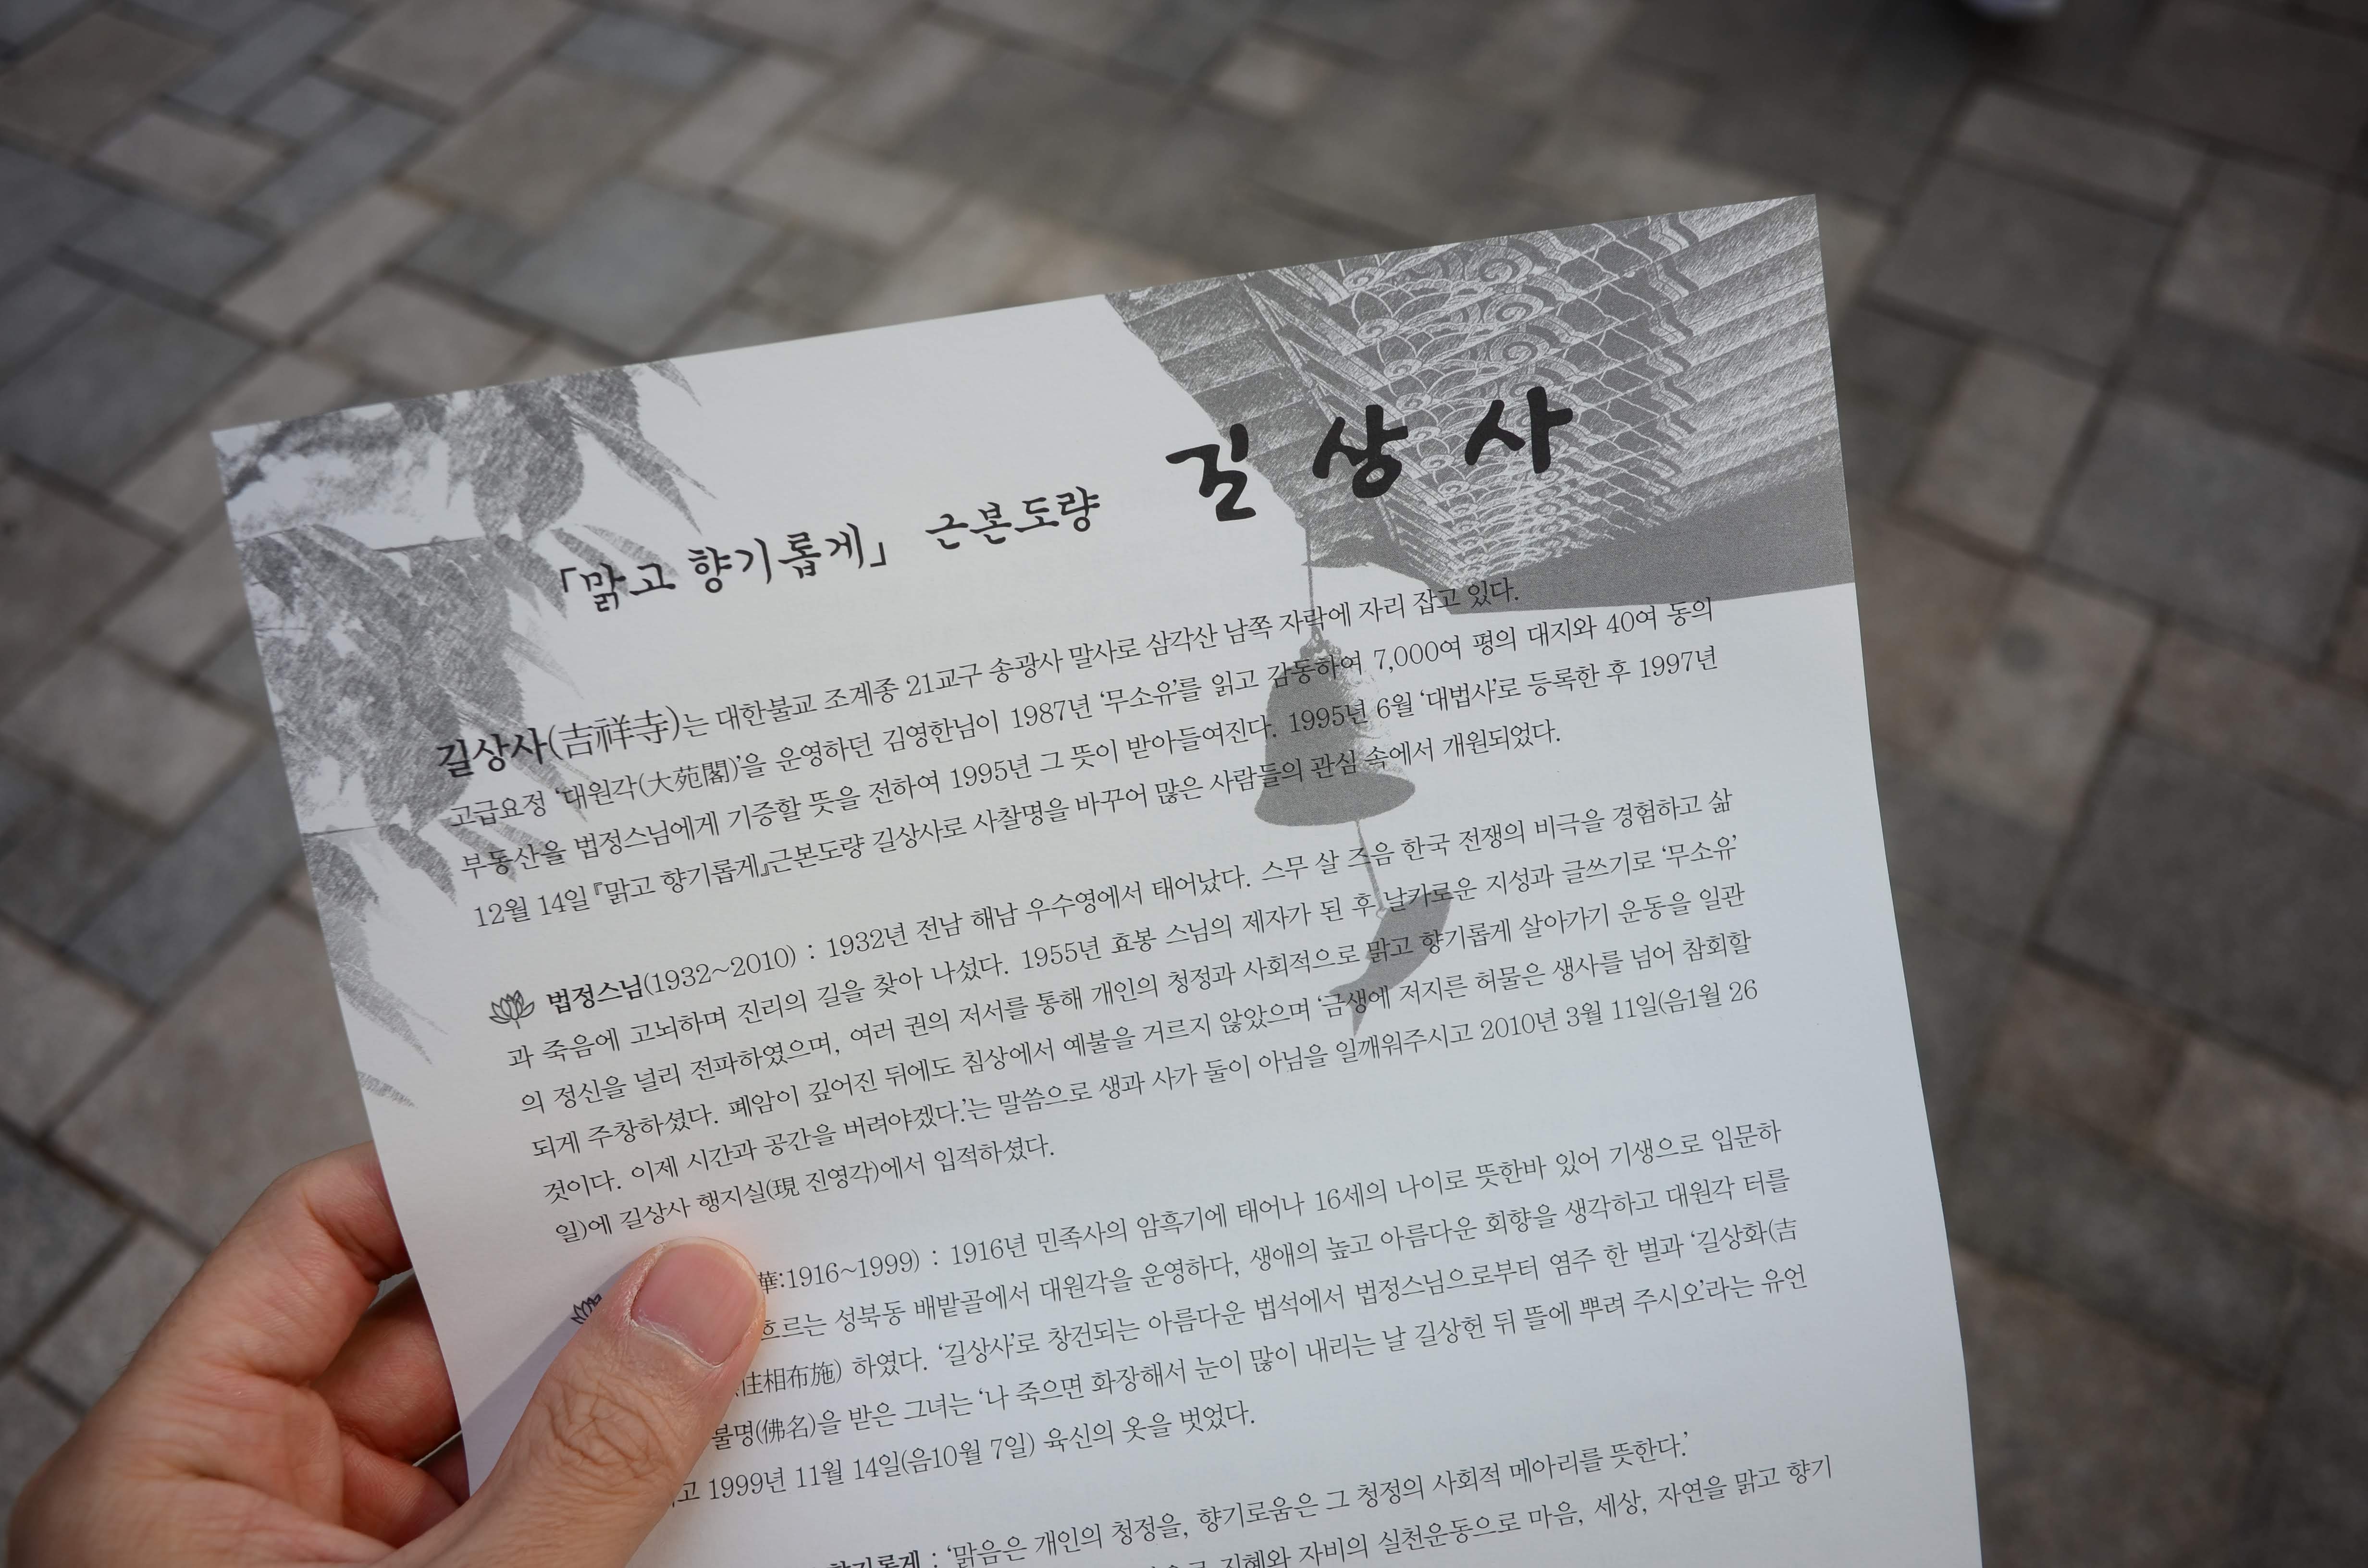 「맑고 향기롭게」 근본도량 길상사
길상사(吉祥寺)는 대한불교 조계종 21교구 송광사 말사로 삼각산 남쪽 자락에 자리 잡고 있다.
고급요정 ‘대원각(大苑閣)’을 운영하던 김영한님이 1987년 ‘무소유’를 읽고 감동하여 7,000여 평의 대지와 40여 동의
부동산을 법정스님에게 기증할 뜻을 전하여 1995년 그 뜻이 받아들여진다. 1995년 6월 ‘대법사’로 등록한 후 1997년
12월 14일『맑고 향기롭게』근본도량 길상사로 사찰명을 바꾸어 많은 사람들의 관심 속에서 개원되었다.
법정스님(1932~2010) : 1932년 전남 해남 우수영에서 태어났다. 스무 살 즈음 한국 전쟁의 비극을 경험하고 삶
과 죽음에 고뇌하며 진리의 길을 찾아 나섰다. 1955년 효봉 스님의 제자가 된 후 날카로운 지성과 글쓰기로 ‘무소유’
의 정신을 널리 전파하였으며, 여러 권의 저서를 통해 개인의 청정과 사회적으로 맑고 향기롭게 살아가기 운동을 일관
되게 주창하셨다. 폐암이 깊어진 뒤에도 침상에서 예불을 거르지 않았으며 ‘금생에 저지른 허물은 생사를 넘어 참회할
것이다. 이제 시간과 공간을 버려야겠다.’는 말씀으로 생과 사가 둘이 아님을 일깨워주시고 2010년 3월 11일(음1월 26
일)에 길상사 행지실(現 진영각)에서 입적하셨다.
華:1916~1999) : 1916년 민족사의 암흑기에 태어나 16세의 나이로 뜻한바 있어 기생으로 입문하
흐르는 성북동 배밭골에서 대원각을 운영하다, 생애의 높고 아름다운 회향을 생각하고 대원각 터를
住相布施) 하였다. ‘길상사’로 창건되는 아름다운 법석에서 법정스님으로부터 염주 한 벌과 ‘길상화(吉
불명(佛名)을 받은 그녀는 ‘나 죽으면 화장해서 눈이 많이 내리는 날 길상헌 뒤 뜰에 뿌려 주시오’라는 유언
고 1999년 11월 14일(음10월 7일) 육신의 옷을 벗었다.
: ‘맑음은 개인의 청정을, 향기로움은 그 청정의 사회적 메아리를 뜻한다.’
지혜와 자비의 실천운동으로 마음, 세상, 자연을 맑고 향기